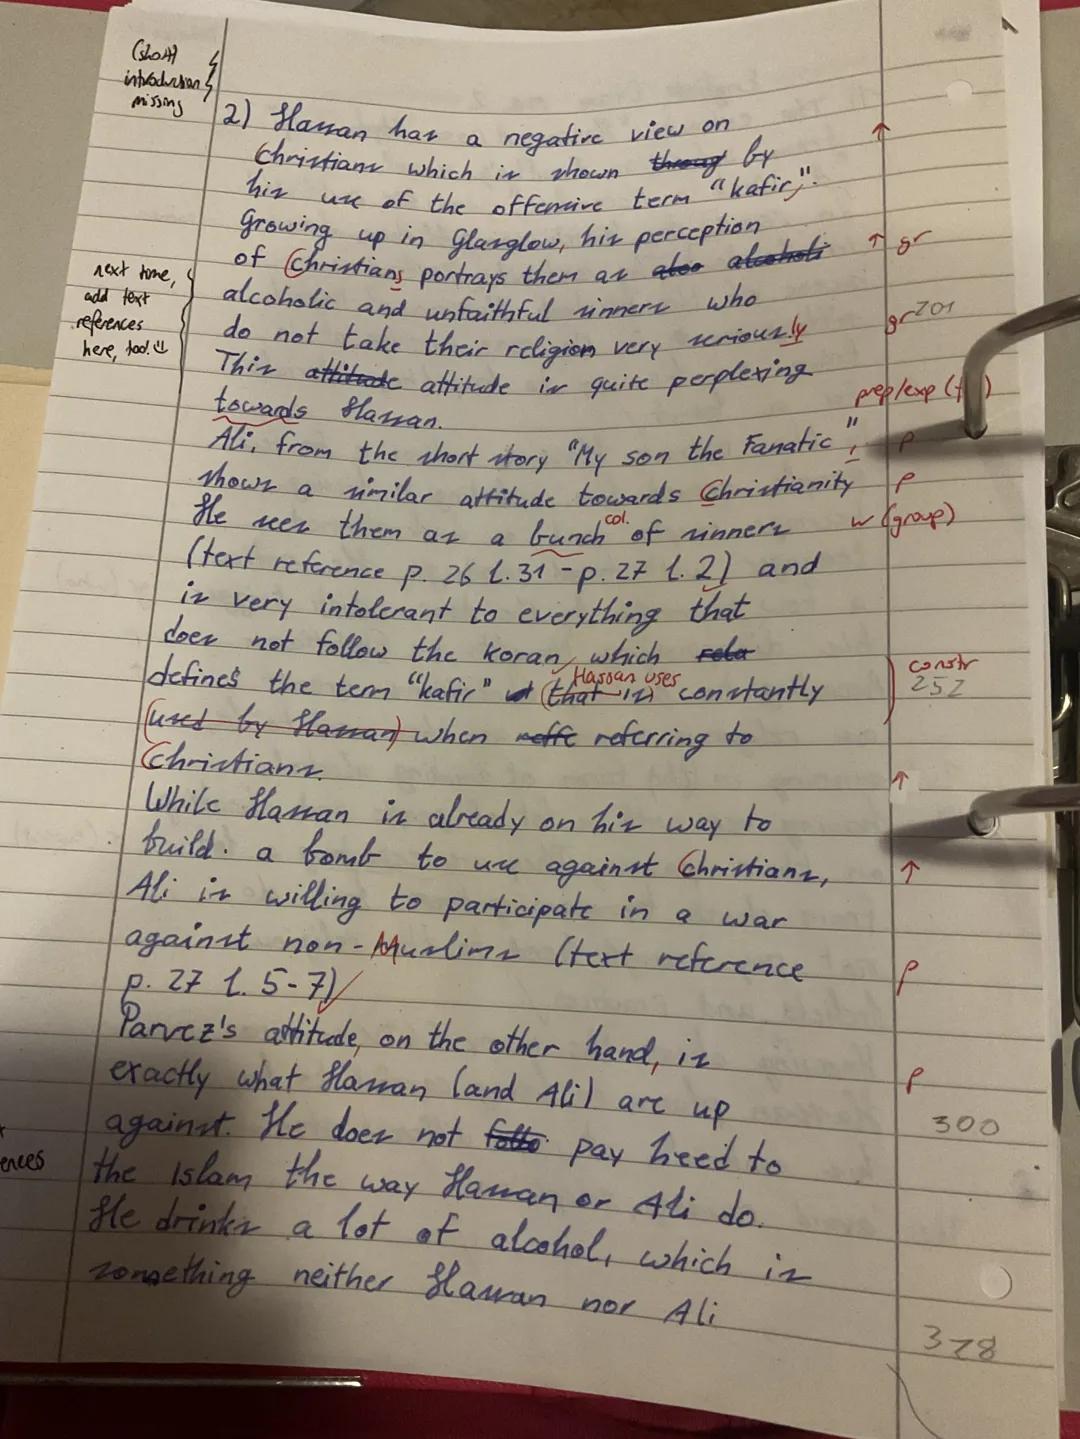 (short)
introduction
missing
2) Hassan has a negative view on
Christians which is shown throug by
his use of the offensive term "kafir,".
Growing up in Glasglow, his perception ↑ gr
of Christians portrays them as also alcoholi
alcoholic and unfaithful sinners who gr 201
do not take their religion very seriously
This attitude attitude is quite perplexing
next time,
add text
references
here, too! ☺
prep/exp
towards Hassan.
Ali, from the short story "My son the Fanatic", p
shows a similar attitude towards Christianity p
He sees them as a bunch of sinners w (group)
col.
(text reference p. 26 l. 31 - p. 27 l. 2) and
is very intolerant to everything that
does not follow the Koran, which rela
Hassan uses
defines the term "kafir" (that is) constantly
constr
252
(used by Hassan) when reffe referring to
Christians. ↑
While Hassan is already on his way to
build. a bomb to use against Christians, ↑
Ali is willing to participate in a war
against non-Muslims (text reference p
p. 27 l. 5-7) ✓
Parvez's attitude, on the other hand, is
exactly what Hassan (and Ali) are up p
300
against. He does not follo pay heed to
ences
the Islam the way Hassan or Ali do.
He drinks a lot of alcohol, which is
something neither Hassan nor Ali
328